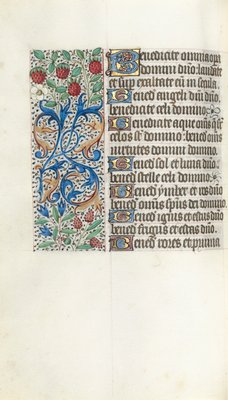 Benedicite omnia opa
domini dño: laudate
et sup exaltate eū in secula.
Bened angeli dñi dño.
benedicite celi domino.
Bened aque om̄s que
celos st̄ domino: bened om̄s
uirtutes domini domino.
Bened sol et luna dño.
bened stelle celi domino.
Bened ymber et ros dño
bened om̄s sp̄us dei domino.
Bened ignis et estus dño
bened frigus et estas dño.
Bened rores et pruina